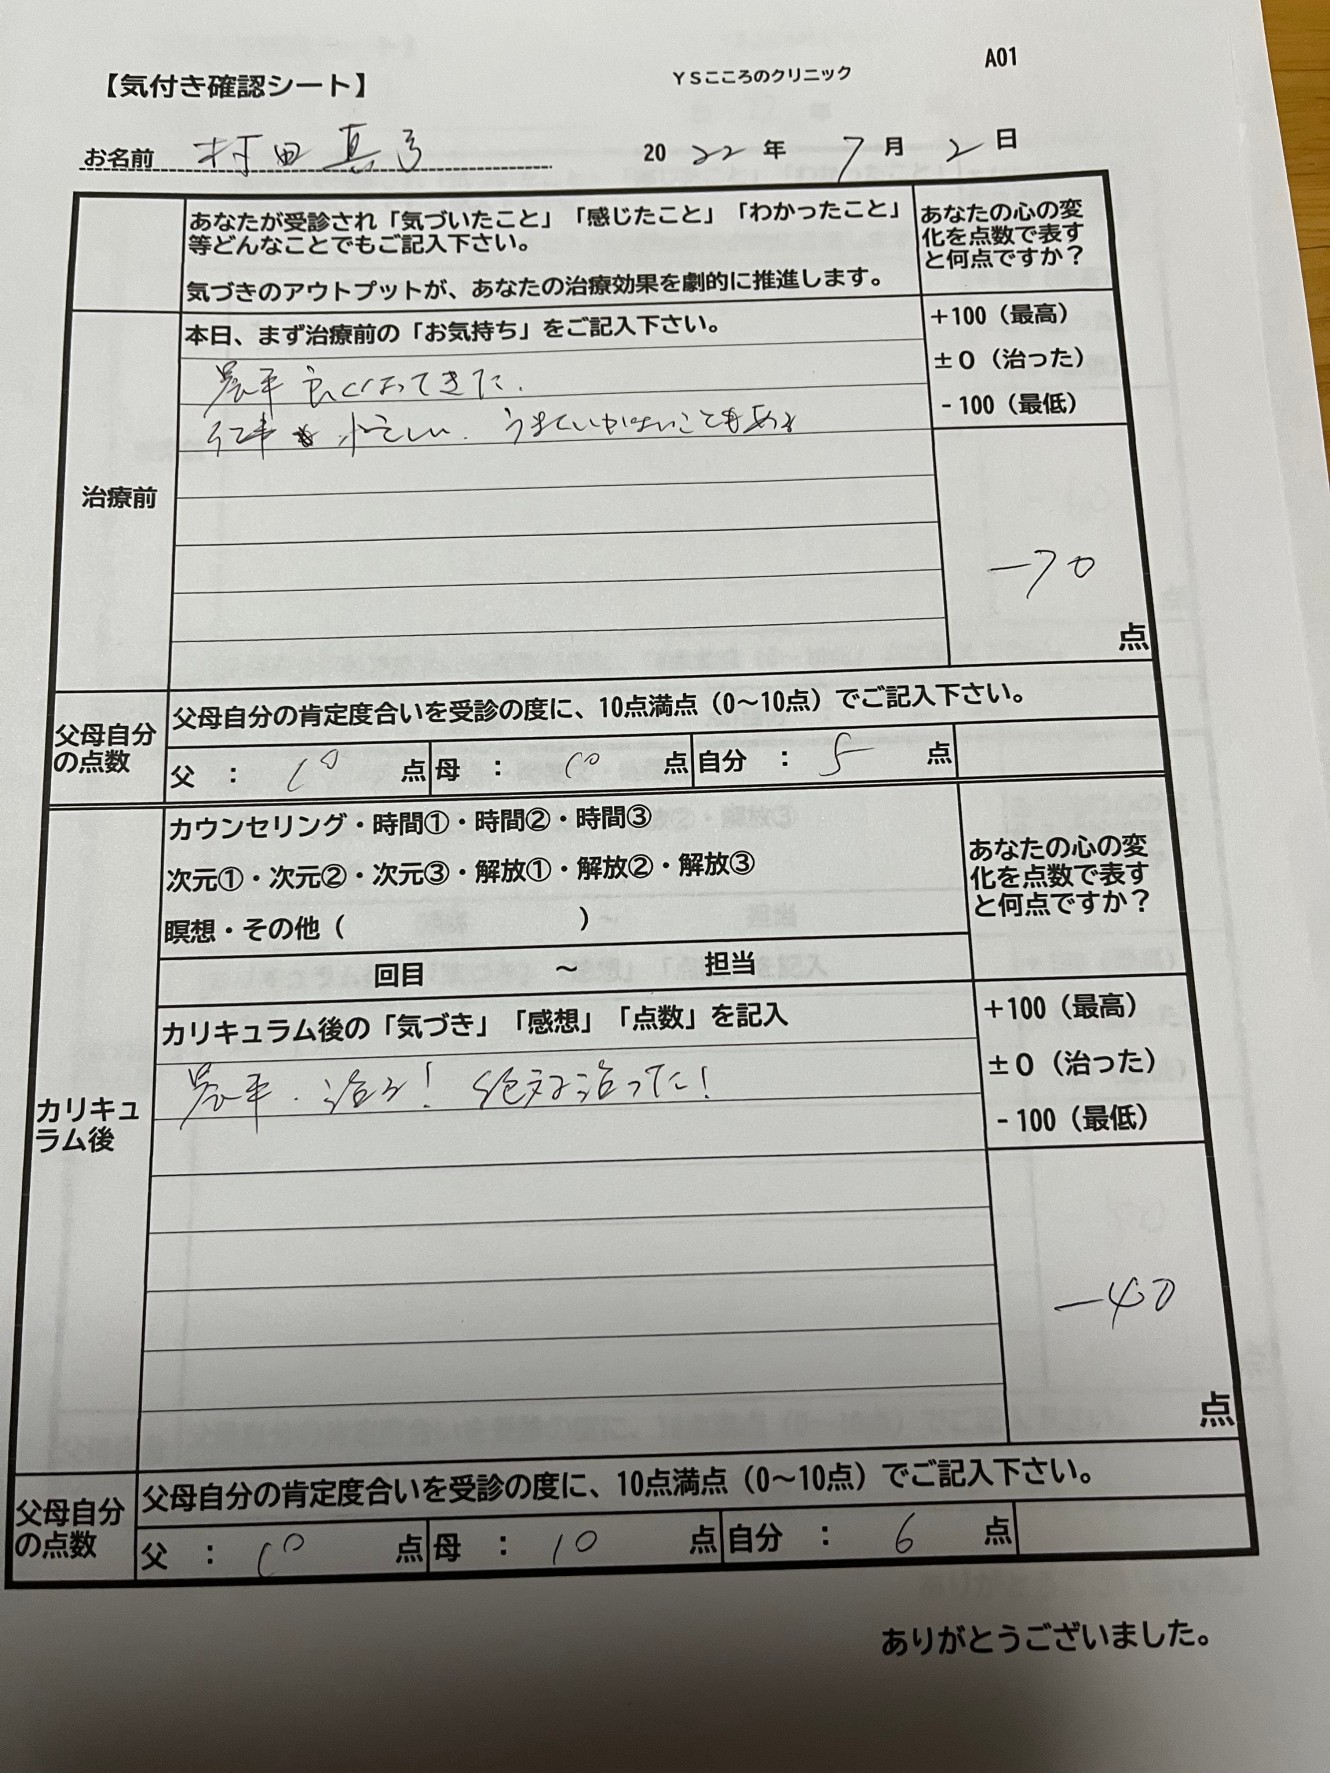 【気付き確認シート】
YSこころのクリニック
A01
お名前 村田 真弓
2022年 7月 2日
あなたが受診され「気づいたこと」「感じたこと」「わかったこと」
等どんなことでもご記入下さい。
気づきのアウトプットが、あなたの治療効果を劇的に推進します。
あなたの心の変
化を点数で表す
と何点ですか？
治療前
本日、まず治療前の「お気持ち」をご記入下さい。
+100（最高）
±0（治った）
-100（最低）
良くなってきた.
忙しい. うまくいかないこともある
-70
点
父母自分
の点数
父母自分の肯定度合いを受診の度に、10点満点（0〜10点）でご記入下さい。
父 ： 10 点 母 ： 10 点 自分 ： 5 点
カウンセリング・時間①・時間②・時間③
次元①・次元②・次元③・解放①・解放②・解放③
瞑想・その他（ ）
回目 〜 担当
あなたの心の変
化を点数で表す
と何点ですか？
カリキュ
ラム後
カリキュラム後の「気づき」「感想」「点数」を記入
+100（最高）
±0（治った）
-100（最低）
治る! 絶対治った!
-40
点
父母自分
の点数
父母自分の肯定度合いを受診の度に、10点満点（0〜10点）でご記入下さい。
父 ： 10 点 母 ： 10 点 自分 ： 6 点
ありがとうございました。